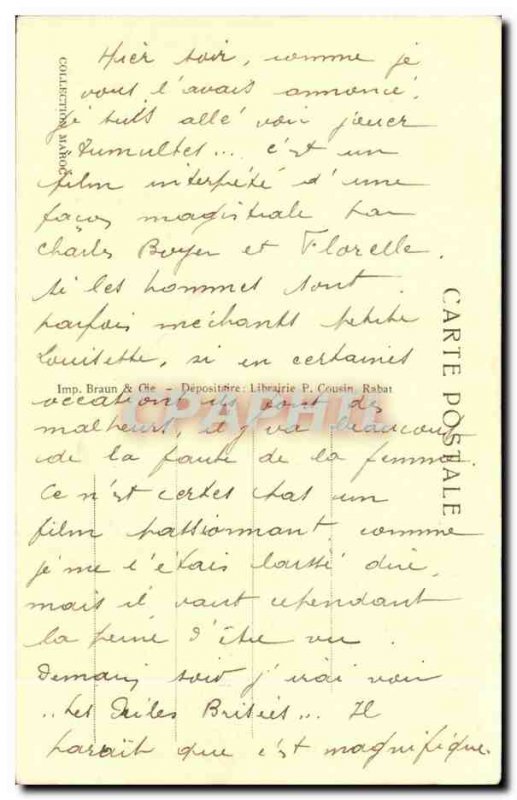 Hier soir, comme je
vous l'avais annoncé,
je suis allé voir jouer
"Tumultes"... c'est un
film interprété d'une
façon magistrale par
Charles Boyer et Florelle.
Si les hommes sont
parfois méchants petite
Louisette, si en certaines
occasions ils font des
malheurs, il y va beaucoup
de la faute de la femme.
Ce n'est certes pas un
film passionnant comme
je me l'étais laissé dire,
mais il vaut cependant
la peine d'être vu.
Demain soir j'irai voir
"Les Ailes Brisées"... Il
paraît que c'est magnifique.
COLLECTION MAROC
Imp. Braun & Cie - Dépositaire: Librairie P. Cousin, Rabat
CARTE POSTALE
CPAPHIL